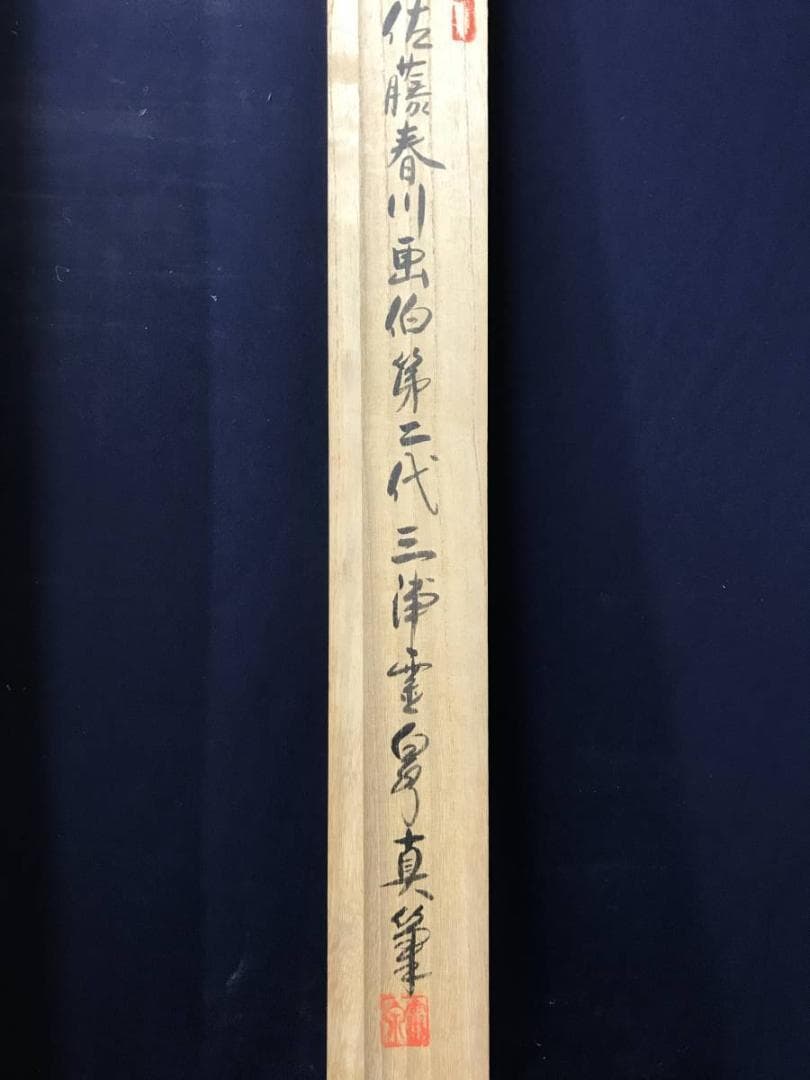 佐藤春川画伯第二代三浦霊皐真筆